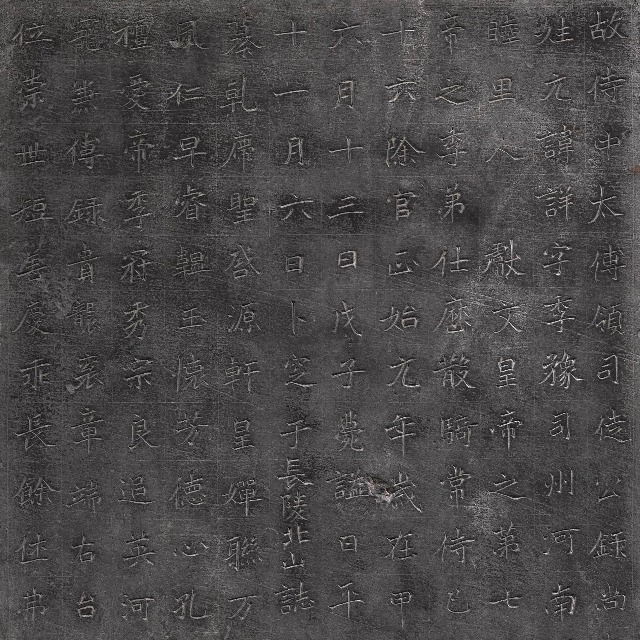 故侍中太傅領司徒公錄尚
姓元諱詳字季豫司州河南
睦里人 獻文皇帝之第七
帝之季弟仕歷散騎常侍已
十六除官正始元年歲在甲
六月十三日戊子薨諡曰平
十一月六日卜窆于長陵北山誌
墓乹席聖啓源軒皇嬋聯万
風仁早睿韞玉懷芳德心孔
愛帝季秀宗良追英河
寵兼傅錄貴襲衮章端右台
位崇世短善慶乖長餘休弗